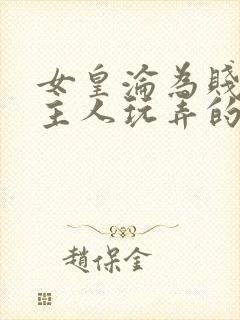 女皇淪為賤
主人玩弄的
趙保全